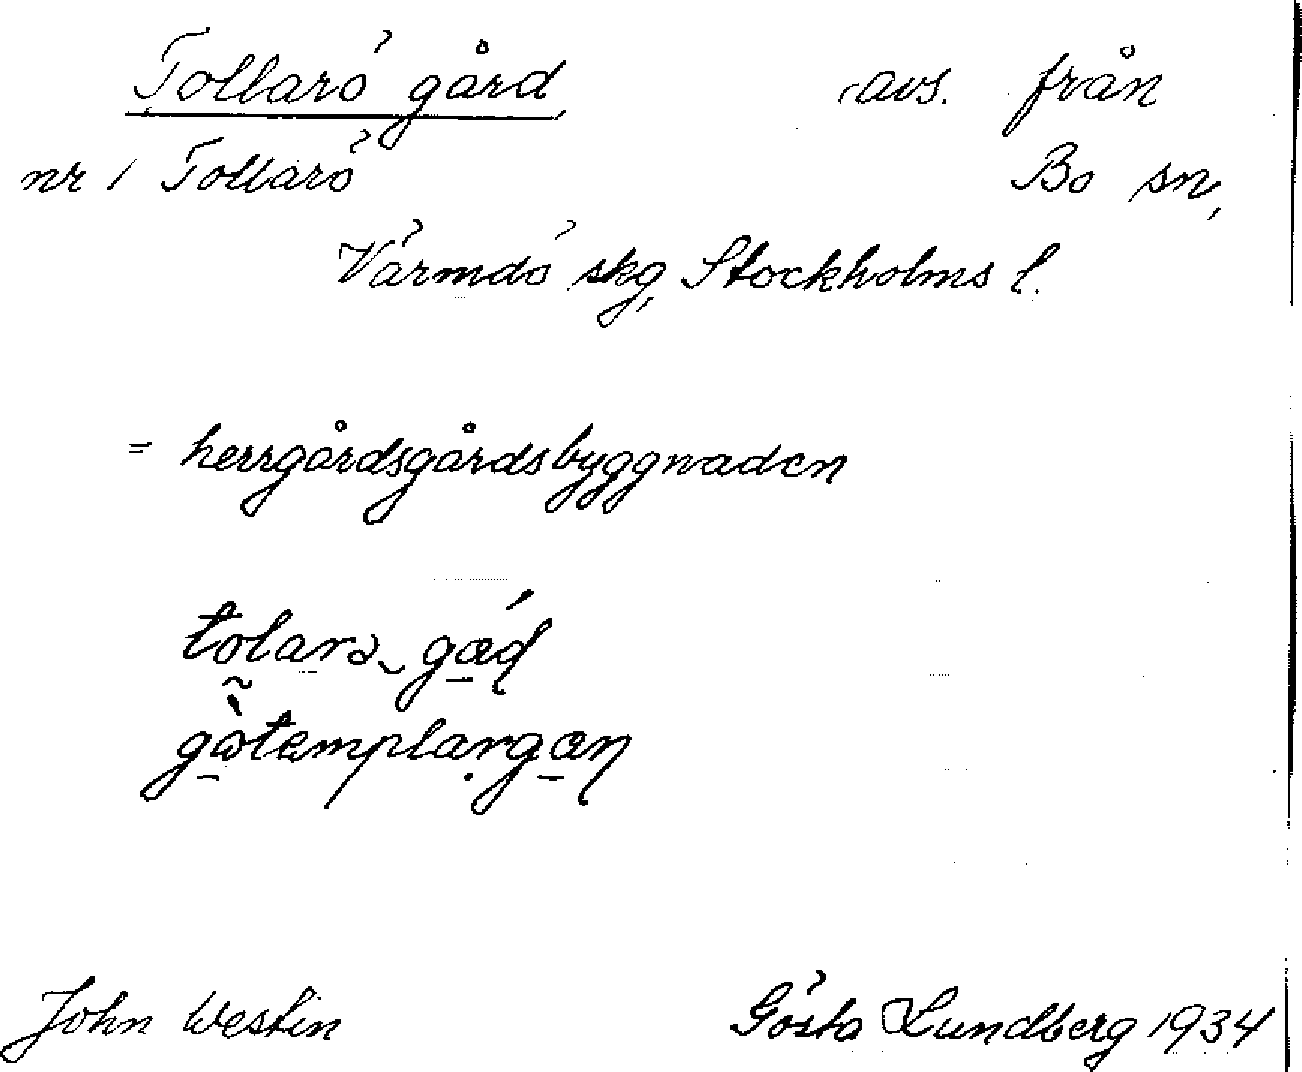 Tollarö gård avs. från
nr 1 Tollarö Bo sn,
Värmdö skg, Stockholms l.
= herrgårdsgårdsbyggnaden
John Westin Gösta Lundberg 1934